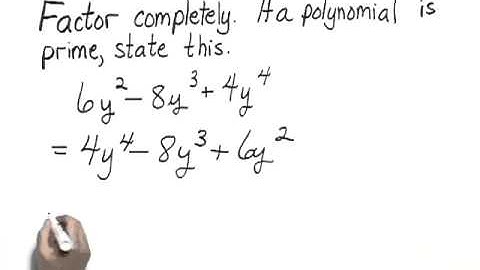 Factor completely. If a polynomial is
prime, state this.
6y² - 8y³ + 4y⁴
= 4y⁴ - 8y³ + 6y²